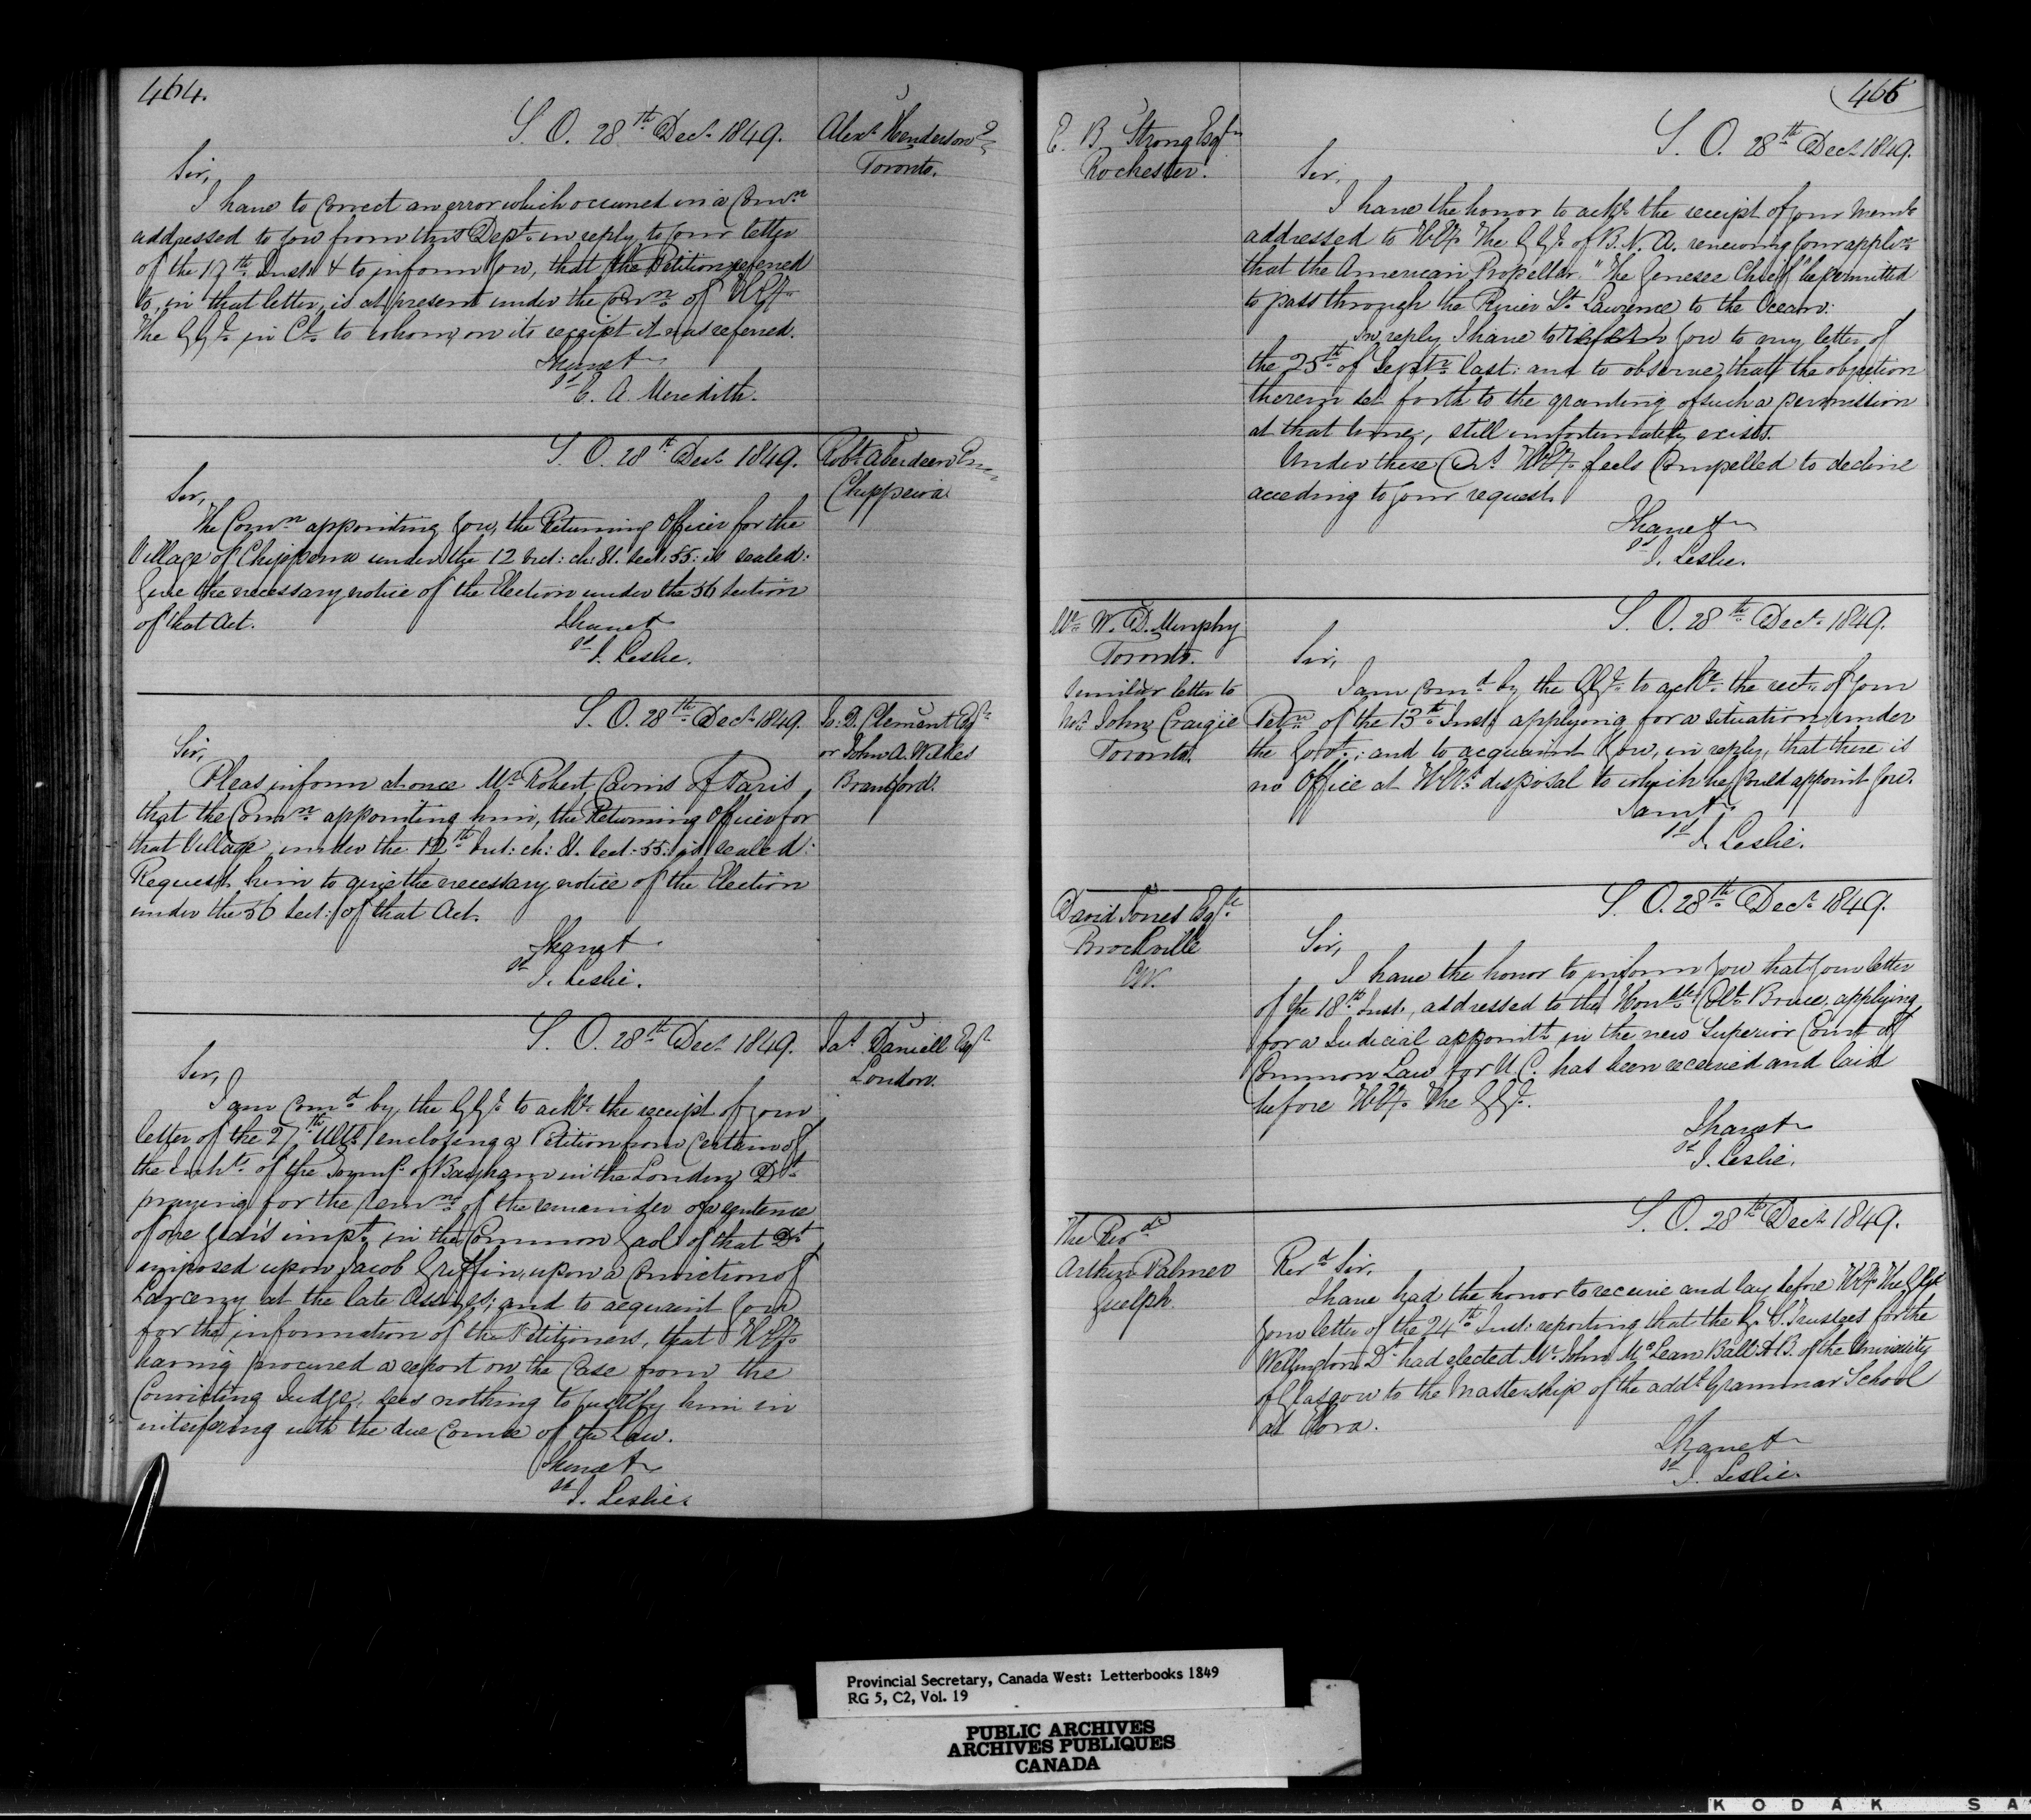 464.
S. O. 28th Decr 1849.
Alexr Henderson
Toronto.
Sir,
I have to correct an error which occurred in a Comn
addressed to you from this Dept. in reply to your letter
of the 17th Inst. & to inform you, that the Petition referred
to, in that letter, is at present under the Conn of H.Ex.
The G.Gl. in Cl. to whom, on its receipt it was referred.
I have &
sd E. A. Meredith.
S. O. 28th Decr 1849.
Robt Aberdeen
Chippewa
Sir,
The Comn appointing you, the Returning Officer for the
Village of Chippewa under the 12 Vict: ch: 81. sect: 55: is sealed:
Give the necessary notice of the Election under the 56 section
of that Act.
I have &
sd J. Leslie.
S. O. 28th Decr 1849.
Jo: D. Clement Esqr
or John A. Wilkes
Brantford.
Sir,
Pleas inform at once Mr Robert Cairns of Paris
that the Comn appointing him, the Returning Officer for
that Village, under the 12th Vict: ch: 81. sect: 55: is sealed:
Request him to give the necessary notice of the Election
under the 56 sect: of that Act.
I have &
sd J. Leslie.
S. O. 28th Decr 1849.
Jas Daniell Esqr
London.
Sir,
I am Comd by, the G.Gl. to ackе the receipt of your
letter of the 27th Ulto. enclosing a Petition from certain of
the Inhts of the Townsp. of Bayham in the London Dt.
praying for the remn of the remainder of a sentence
of one year's impt. in the Common Gaol of that Dt
imposed upon Jacob Griffin, upon a conviction of
Larceny at the late Assizes; and to acquaint you
for the information of the Petitioners, that H.Ex.
having procured a report on the Case from the
Convicting Judge, sees nothing to justify him in
interfering with the due Course of the Law.
I have &
sd J. Leslie.
465
E. B. Strong Esqr
Rochester.
S. O. 28th Decr 1849.
Sir,
I have the honor to acke the receipt of your Meml
addressed to H.Ex. The G.Gl. of B. N. A. renewing your applin
that the American Propellar "The Genesee Chief" be permitted
to pass through the River St Lawrence to the Ocean:
In reply I have to refer you to my letter of
the 25th of Septr last: and to observe, that the objection
therein set forth to the granting of such a permission
at that time, still unfortunately exists.
Under these Crs H.Ex. feels compelled to decline
acceding to your request.
I have &
sd J. Leslie.
Mr W. D. Murphy
Toronto.
Similar letter to
Mr John Craigie
Toronto.
S. O. 28th Decr 1849.
Sir,
I am comd by the G.Gl. to acke the rect. of your
Petn of the 13th Inst: applying for a situation under
the Govt.; and to acquaint you, in reply, that there is
no Office at H.Ex's disposal to which he could appoint you.
I am &
sd J. Leslie.
David Jones Esqr
Brockville
C.W.
S. O. 28th Decr 1849.
Sir,
I have the honor to inform you that your letter
of the 18th Inst., addressed to the Honble Coll. Bruce, applying
for a Judicial appointt in the new Superior Court of
Common Law for U. C. has been received and laid
before H.Ex. The G.Gl.
I have &
sd J. Leslie.
The Revd
Arthur Palmer
Guelph.
S. O. 28th Decr 1849.
Revd Sir,
I have had the honor to receive and lay before H.Ex. The G.Gl.
your letter of the 24th Inst: reporting that the G. S. Trustees for the
Wellington Dt had elected Mr John McLean Ball A.B. of the University
of Glasgow to the Mastership of the addl Grammar School
at Elora.
I have &
sd J. Leslie.
Provincial Secretary, Canada West: Letterbooks 1849
RG 5, C2, Vol. 19
PUBLIC ARCHIVES
ARCHIVES PUBLIQUES
CANADA
KODAK SA